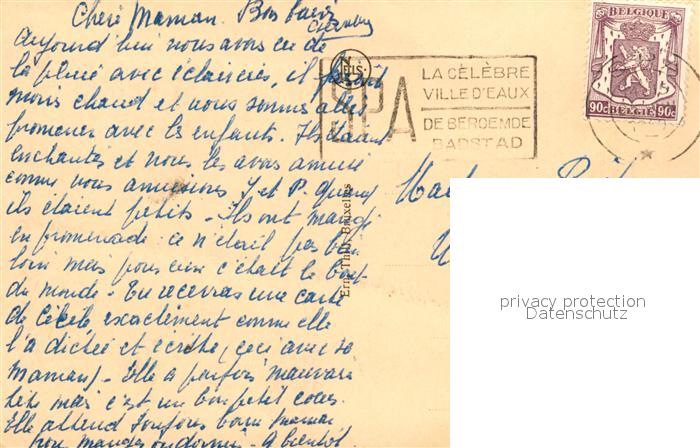 Chère Maman. Bons baisers
Aujourd'hui nous avons eu de
la pluie avec éclaircies, il faisait
moins chaud et nous sommes allés
promener avec les enfants. Ils étaient
enchantés et nous les avons amusé
comme nous amusions J et P. quand
ils étaient petits - Ils ont mangé
en promenade. ce n'était pas bien
loin mais pour eux c'était le bout
du monde - Tu recevras une carte
de Cécile, exactement comme elle
l'a dictée et écrite, (ceci avec sa
Maman) - Elle a parfois mauvaise
tête mais c'est un bon petit cœur.
Elle attend toujours bonne maman
pour manger ou dormir - A bientôt.
Nels
Ern. Thill, Bruxelles
SPA
LA CÉLÈBRE
VILLE D'EAUX
DE BEROEMDE
BADSTAD
BELGIQUE
90c BELGIE 90c
privacy protection
Datenschutz